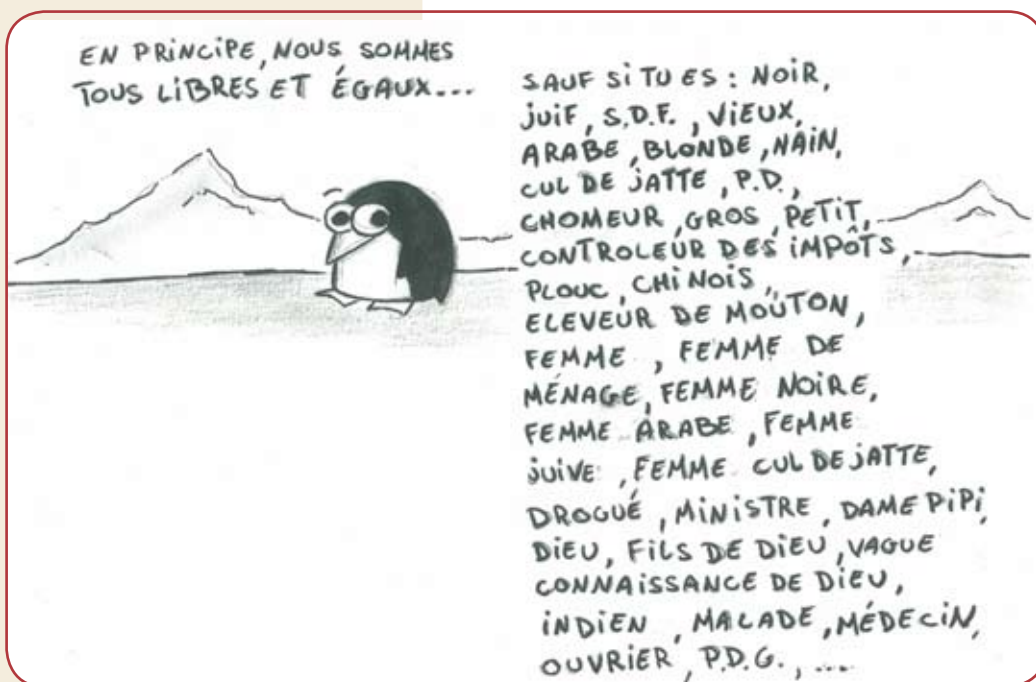 EN PRINCIPE, NOUS SOMMES
TOUS LIBRES ET ÉGAUX...
SAUF SI TU ES : NOIR,
JUIF, S.D.F., VIEUX,
ARABE, BLONDE, NAIN,
CUL DE JATTE, P.D.,
CHOMEUR, GROS, PETIT,
CONTROLEUR DES IMPÔTS,
PLOUC, CHINOIS,
ELEVEUR DE MOUTON,
FEMME, FEMME DE
MÉNAGE, FEMME NOIRE,
FEMME ARABE, FEMME
JUIVE, FEMME CUL DE JATTE,
DROGUÉ, MINISTRE, DAME PIPI,
DIEU, FILS DE DIEU, VAGUE
CONNAISSANCE DE DIEU,
INDIEN, MALADE, MÉDECIN,
OUVRIER, P.D.G., ....